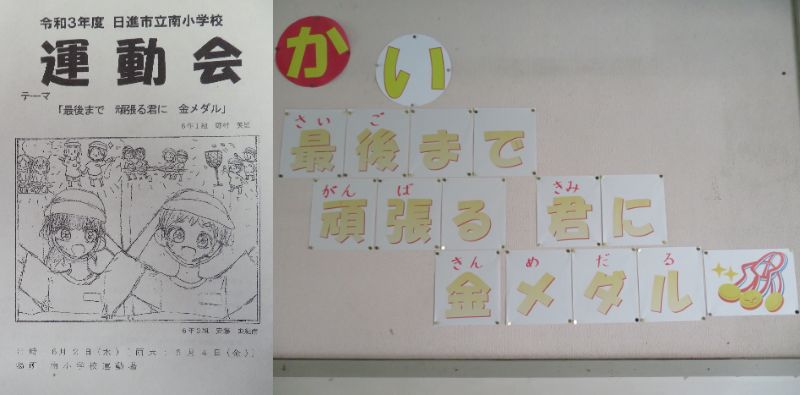 令和3年度 日進市立南小学校
運動会
テーマ
「最後まで 頑張る君に 金メダル」
6年1組
6年2組
日時 6月2日(水)
場所 南小学校運動
かい
さいご
最後まで
がんば きみ
頑張る 君に
きん めだる
金メダル